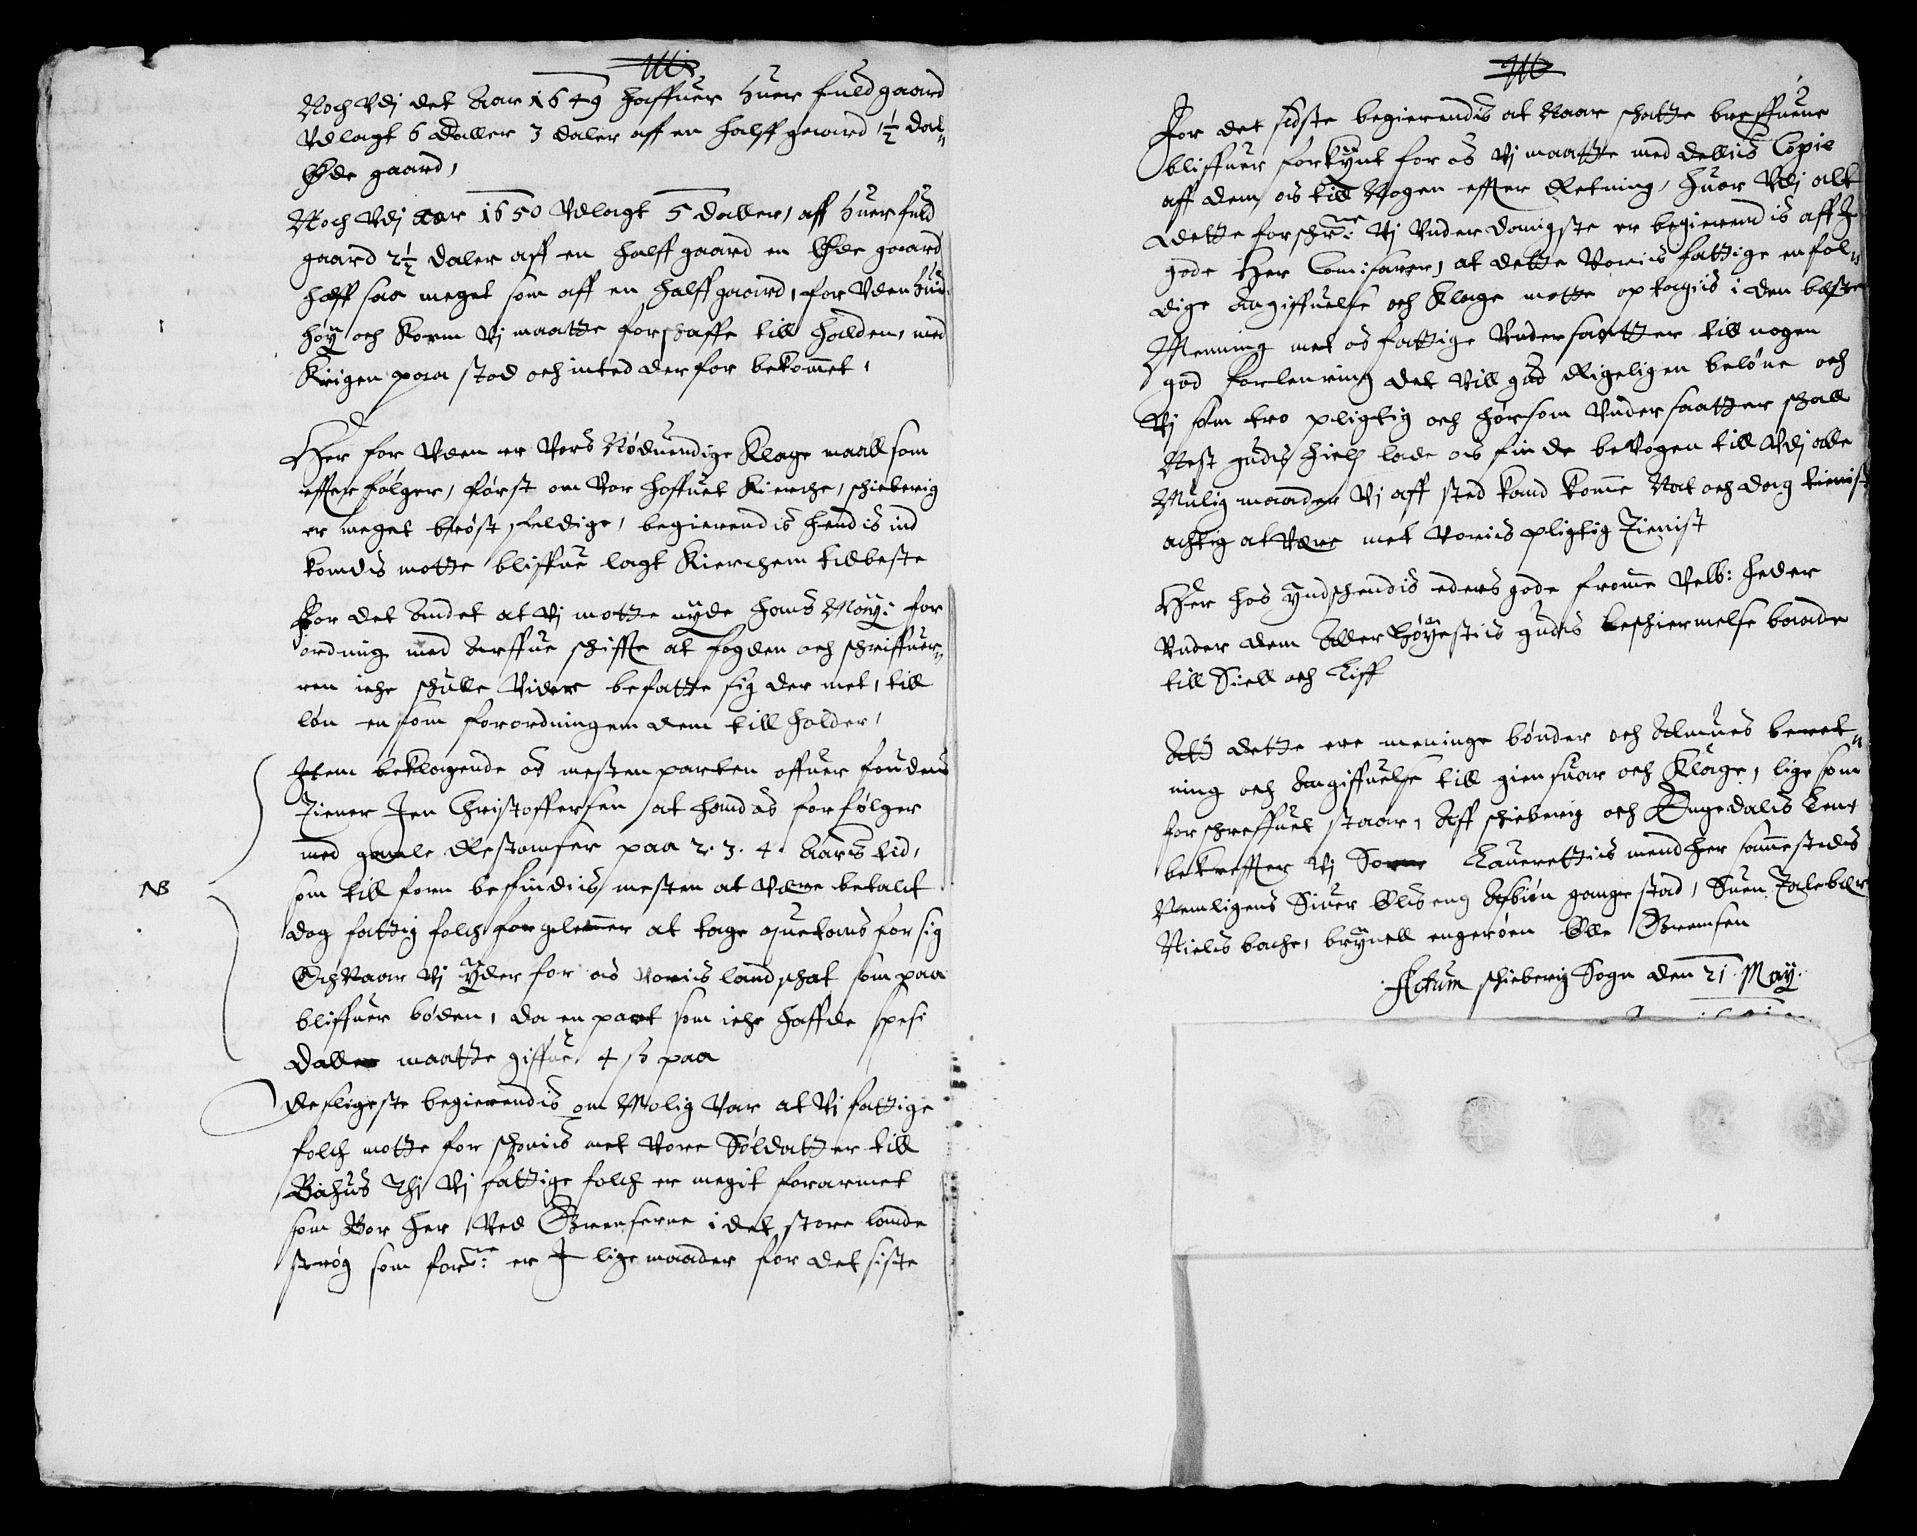 Noch Vdj det Aar 1649 haffuer huer fuld gaard
Vdlagt 6 Daller 3 daler aff en halff gaard, 1½ dal=
Øde gaard,
Noch Vdj aar 1650 Vdlagt 5 daller, aff huer fuld
gaard 2½ daler aff en halff gaard en Øde gaard
halff saa meget som aff en halff gaard, for Vden hud
høÿ och Korn Vj maatte forschaffe till Halden, med
Krigen paa stod och inted derfor bekommet,
Her for Vden er Vors Nødvendige Klage maall som
effter følger, først om Vor hoffuet Kierche, schieberig
er meget brøst feldige, begierendis hendis ind
komdis motte bliffue lagt Kierchem till beste
For det Andet at Vj motte nÿde Hans Maÿ: for
ordning med Arffue schiffte at fogden och schriffuer=
ren iche schulle Vider befatte sig der met, till
løn en som forordningen dem till holder,
Item beklagende os mesten parten offuer foudens
Tiener Jen Christoffersen at hand os forfølger
med gamle Restantser paa 2. 3. 4. Aars tid,
NB
som till forn befindiis mesten at Være betalt
dog fattig folch forglemmer at tage quetans for sig
Och Naar Vj Ÿder for os Voriis landschat som paa
bliffuer bøden, da en part som iche haffde spesi
Daller maatte giffue 4 ß paa
Desligeste begierendis om Molig Var at Vj fattige
folch motte for schoniis met Vore Soldatter till
Bahus Thj Vj fattige folch er megit forarmet
som Bor her Ved Grentserne i det store lande
strøg som forne: er J lige maader for det siste
For det sidste begierendis at Naar schatte breffuene
bliffuer forkÿnt for os Vj maatte med dellis Copie
aff dem, os till Nogen effter Retning, huor Vdj alt
dette forschrne: Vj Vnderdanigste er begierendis aff J
gode Her Comisarer, at dette Voriis fattige enfol=
dige Angiffuelse och Klage motte optagiis i den beste
Mening met os fattige Vndersaatter till nogen
god forlenring det Vill gud Rigeligen beløne och
Vj som tro pligtig och hørsom Vndersaatter schall
Nest gudis hielp lade os finde beVogen till Vdj alle
Mulig maader Vj aff sted kand komme Nat och dag tienist
achtig at Være met Voriis pligtig Tienist
Her hos ÿndschendis eders gode fromme Velb: heder
Vnder dem Aller Høÿestiis gudis beschiermelse baade
till Siell och Liff
Att dette ere meninge bønder och Almues beret=
ning och Angiffuelse till giensuar och Klage, lige som
forschreffuet staar, Aff schieberig och Ongedalis Lens
bekreffter Vj Sorne Lauerettiis mend her sammestedis
Nemligens Siuer Olis eng Asbiøn gangestad, Suen Talebær
Nielis bache, brÿnell engerøen Olle Grensen
Actum schieberig Sogn den 21 Maÿ.